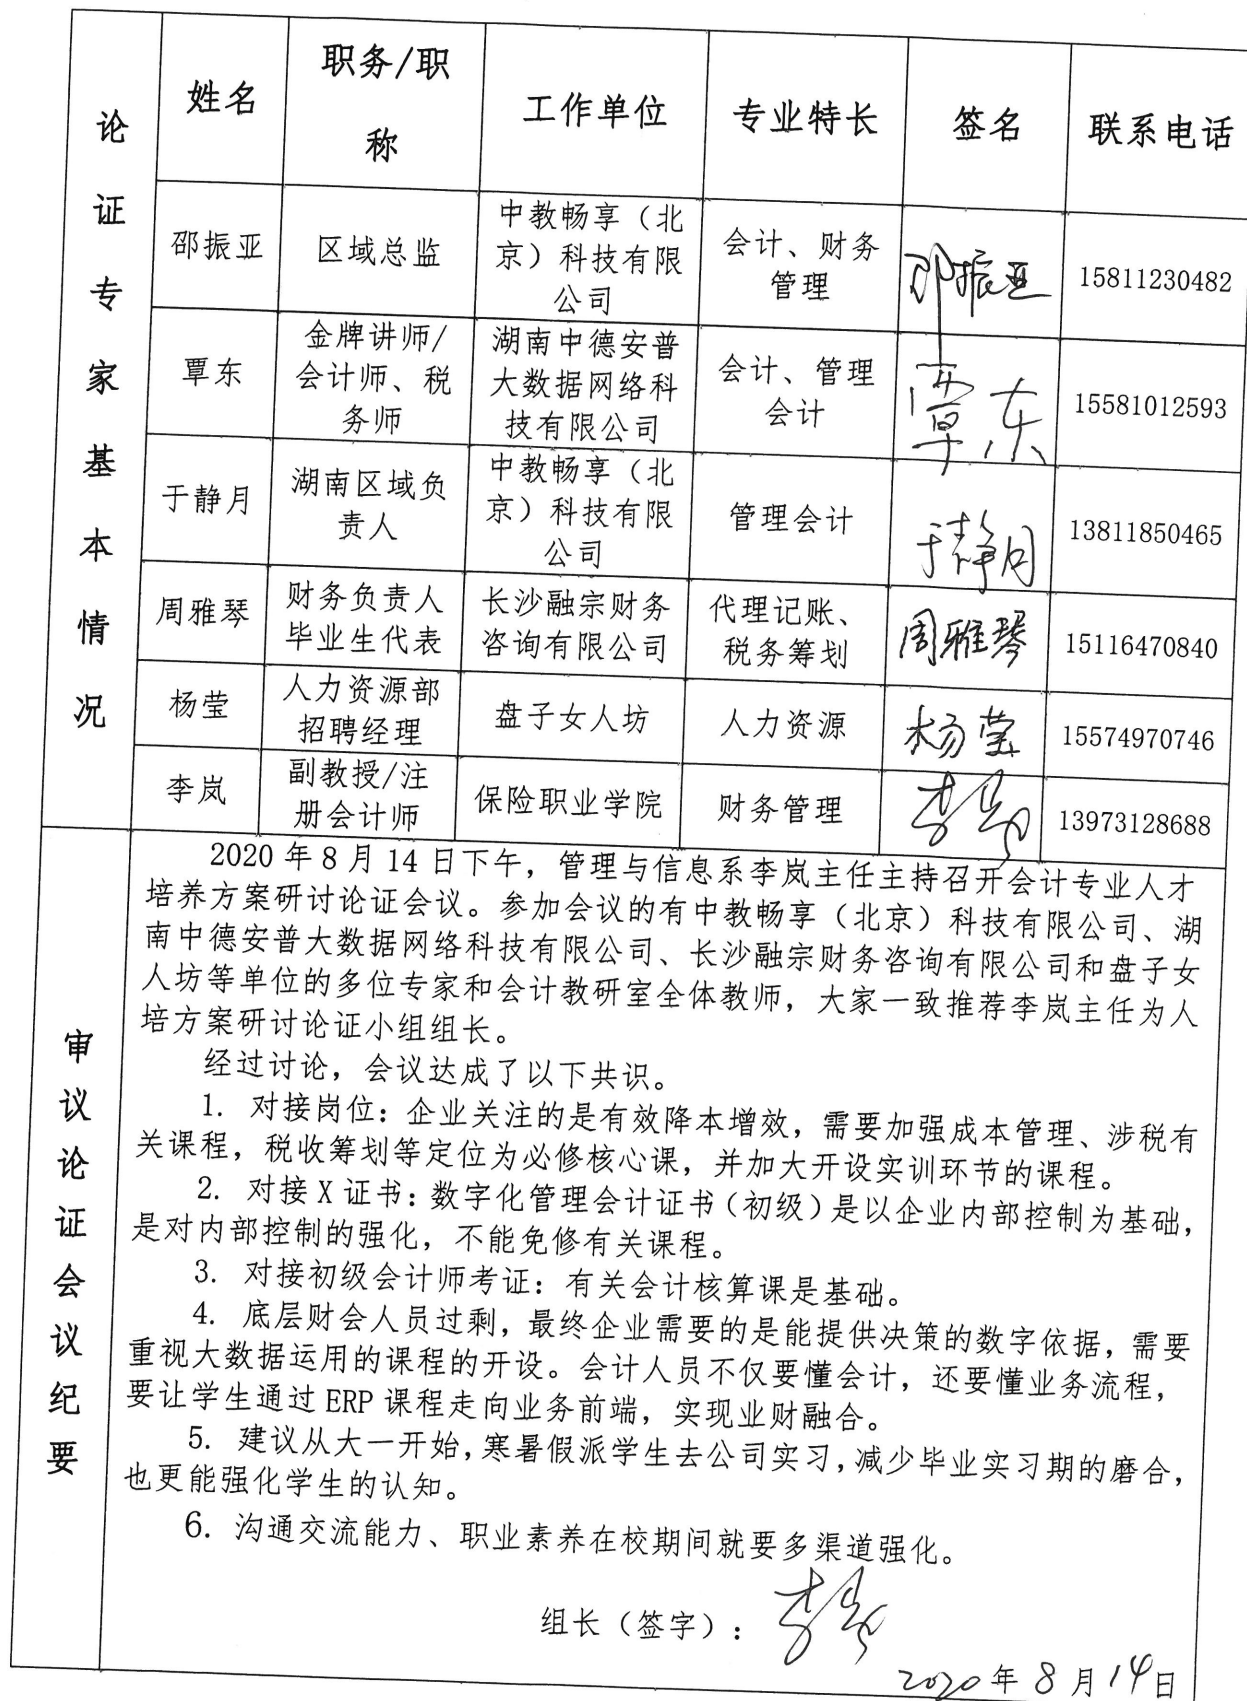 论证专家基本情况
姓名 职务/职称 工作单位 专业特长 签名 联系电话
邵振亚 区域总监 中教畅享（北京）科技有限公司 会计、财务管理 邵振亚 15811230482
覃东 金牌讲师/会计师、税务师 湖南中德安普大数据网络科技有限公司 会计、管理会计 覃东 15581012593
于静月 湖南区域负责人 中教畅享（北京）科技有限公司 管理会计 于静月 13811850465
周雅琴 财务负责人毕业生代表 长沙融宗财务咨询有限公司 代理记账、税务筹划 周雅琴 15116470840
杨莹 人力资源部招聘经理 盘子女人坊 人力资源 杨莹 15574970746
李岚 副教授/注册会计师 保险职业学院 财务管理 李岚 13973128688
审议论证会议纪要
2020年8月14日下午，管理与信息系李岚主任主持召开会计专业人才
培养方案研讨论证会议。参加会议的有中教畅享（北京）科技有限公司、湖
南中德安普大数据网络科技有限公司、长沙融宗财务咨询有限公司和盘子女
人坊等单位的多位专家和会计教研室全体教师，大家一致推荐李岚主任为人
培方案研讨论证小组组长。
经过讨论，会议达成了以下共识。
1. 对接岗位：企业关注的是有效降本增效，需要加强成本管理、涉税有
关课程，税收筹划等定位为必修核心课，并加大开设实训环节的课程。
2. 对接X证书：数字化管理会计证书（初级）是以企业内部控制为基础，
是对内部控制的强化，不能免修有关课程。
3. 对接初级会计师考证：有关会计核算课是基础。
4. 底层财会人员过剩，最终企业需要的是能提供决策的数字依据，需要
重视大数据运用的课程的开设。会计人员不仅要懂会计，还要懂业务流程，
要让学生通过ERP课程走向业务前端，实现业财融合。
5. 建议从大一开始，寒暑假派学生去公司实习，减少毕业实习期的磨合，
也更能强化学生的认知。
6. 沟通交流能力、职业素养在校期间就要多渠道强化。
组长（签字）：李岚
2020年8月14日